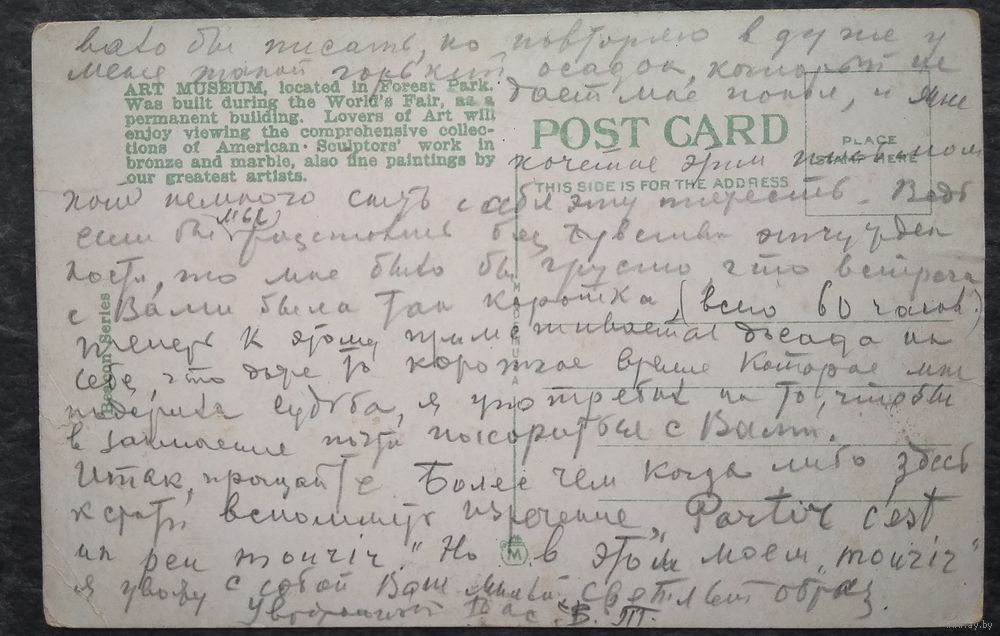 вало бы писать, но повторяю в душе у
меня такой горький осадок, который не
дает мне покоя, и мне
ART MUSEUM, located in Forest Park.
Was built during the World's Fair, as a
permanent building. Lovers of Art will
enjoy viewing the comprehensive collec-
tions of American Sculptors' work in
bronze and marble, also fine paintings by
our greatest artists.
POST CARD
PLACE
HERE
THIS SIDE IS FOR THE ADDRESS
хочется этим письмом
хоть немного снять с себя эту тяжесть. Ведь
если бы мы расстались без чувства
то мне было бы грустно, что встреча
с Вами была так коротка (всего 60 часов)
теперь к этому примешивается досада на
себя, что даже то короткое время которое мне
подарила судьба, я употребил на то, чтобы
в заключение почти поссориться с Вами.
Итак, прощайте Более чем когда либо здесь
кстати вспомнить изречение „Partir c'est
un peu mourir." Но в этом моем „mourir"
я увожу с собой Ваш милый, светлый образ.
Вас В. П.
Beacon Series
M